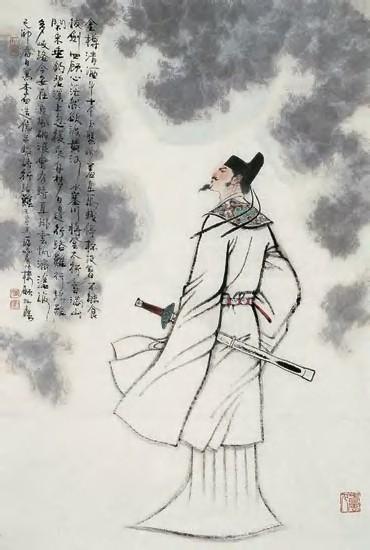 金樽清酒斗十千玉盤珍羞直萬錢停杯投箸不能食
拔劍四顧心茫然欲渡黃河冰塞川將登太行雪滿山
閑來垂釣碧溪上忽復乘舟夢日邊行路難行路難
多岐路今安在長風破浪會有時直掛雲帆濟滄海
己卯春日寫李白造像